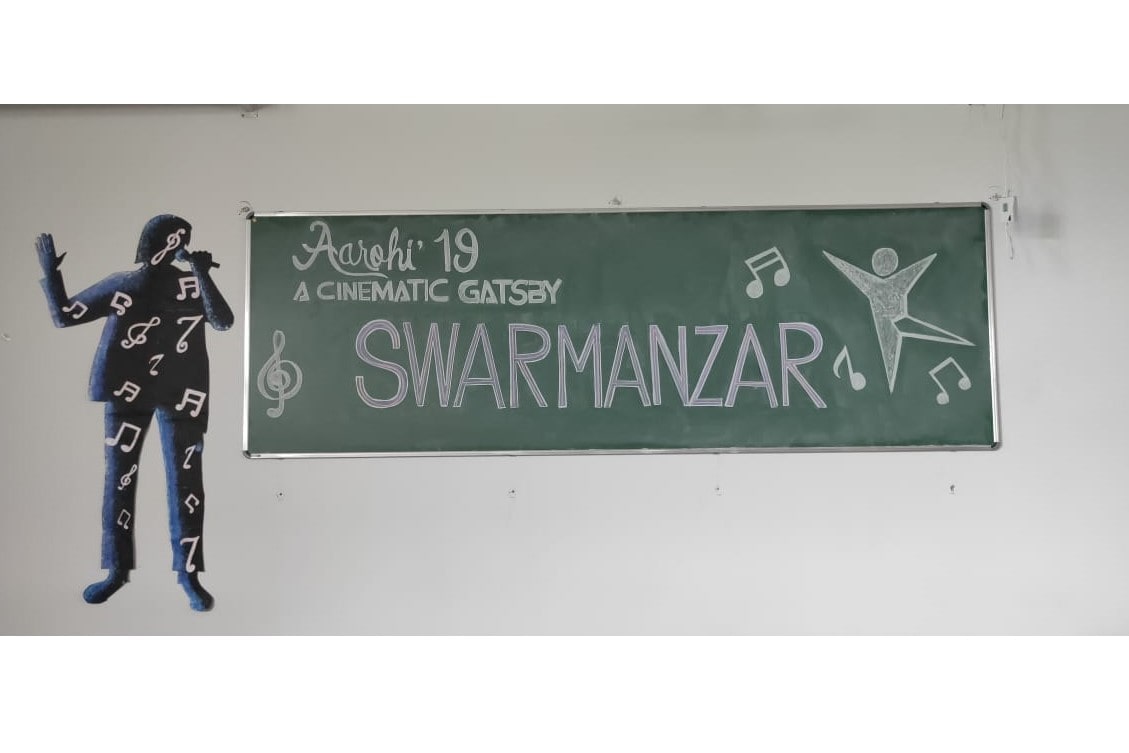 Aarohi' 19
A CINEMATIC GATSBY
SWARMANZAR